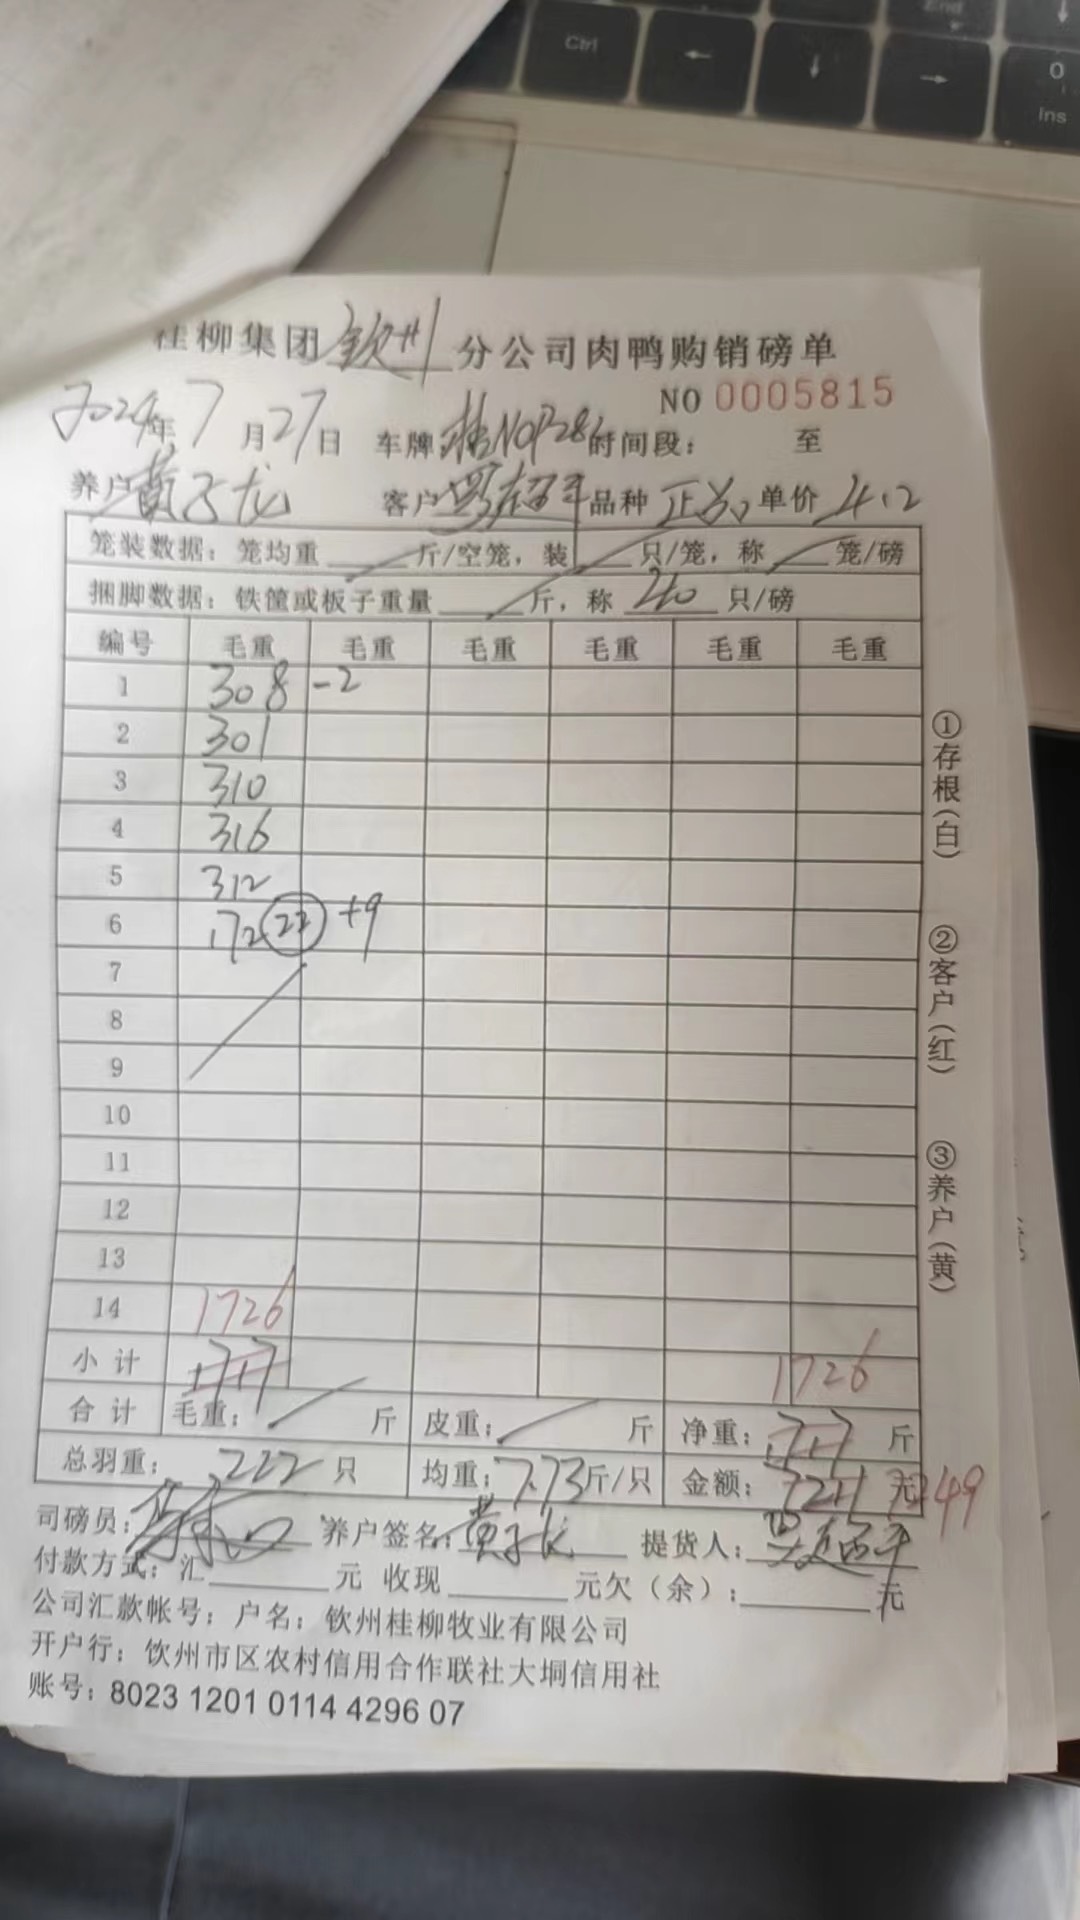 End
Ctrl ← ↓ → 0
Ins
桂柳集团钦州分公司肉鸭购销磅单
NO 0005815
2024年7月27日 车牌 时间段: 至
养户黄子龙 客户罗超平 品种 单价4.2
笼装数据:笼均重 斤/空笼,装 只/笼,称 笼/磅
捆脚数据:铁筐或板子重量 斤,称 只/磅
编号 毛重 毛重 毛重 毛重 毛重 毛重
1 308 -2
2 301
3 310
4 316
5 312
6 172 22 +9
7
8
9
10
11
12
13
14 1726
小计 1717 1726
合计 毛重: 斤 皮重: 斤 净重:1717斤
总羽重:222只 均重:7.73斤/只 金额:7211元 7249
司磅员: 养户签名:黄子龙 提货人:罗超平
付款方式:汇 元 收现 元欠(余): 元
公司汇款帐号:户名:钦州桂柳牧业有限公司
开户行:钦州市区农村信用合作联社大垌信用社
账号:8023 1201 0114 4296 07
①存根(白)
②客户(红)
③养户(黄)